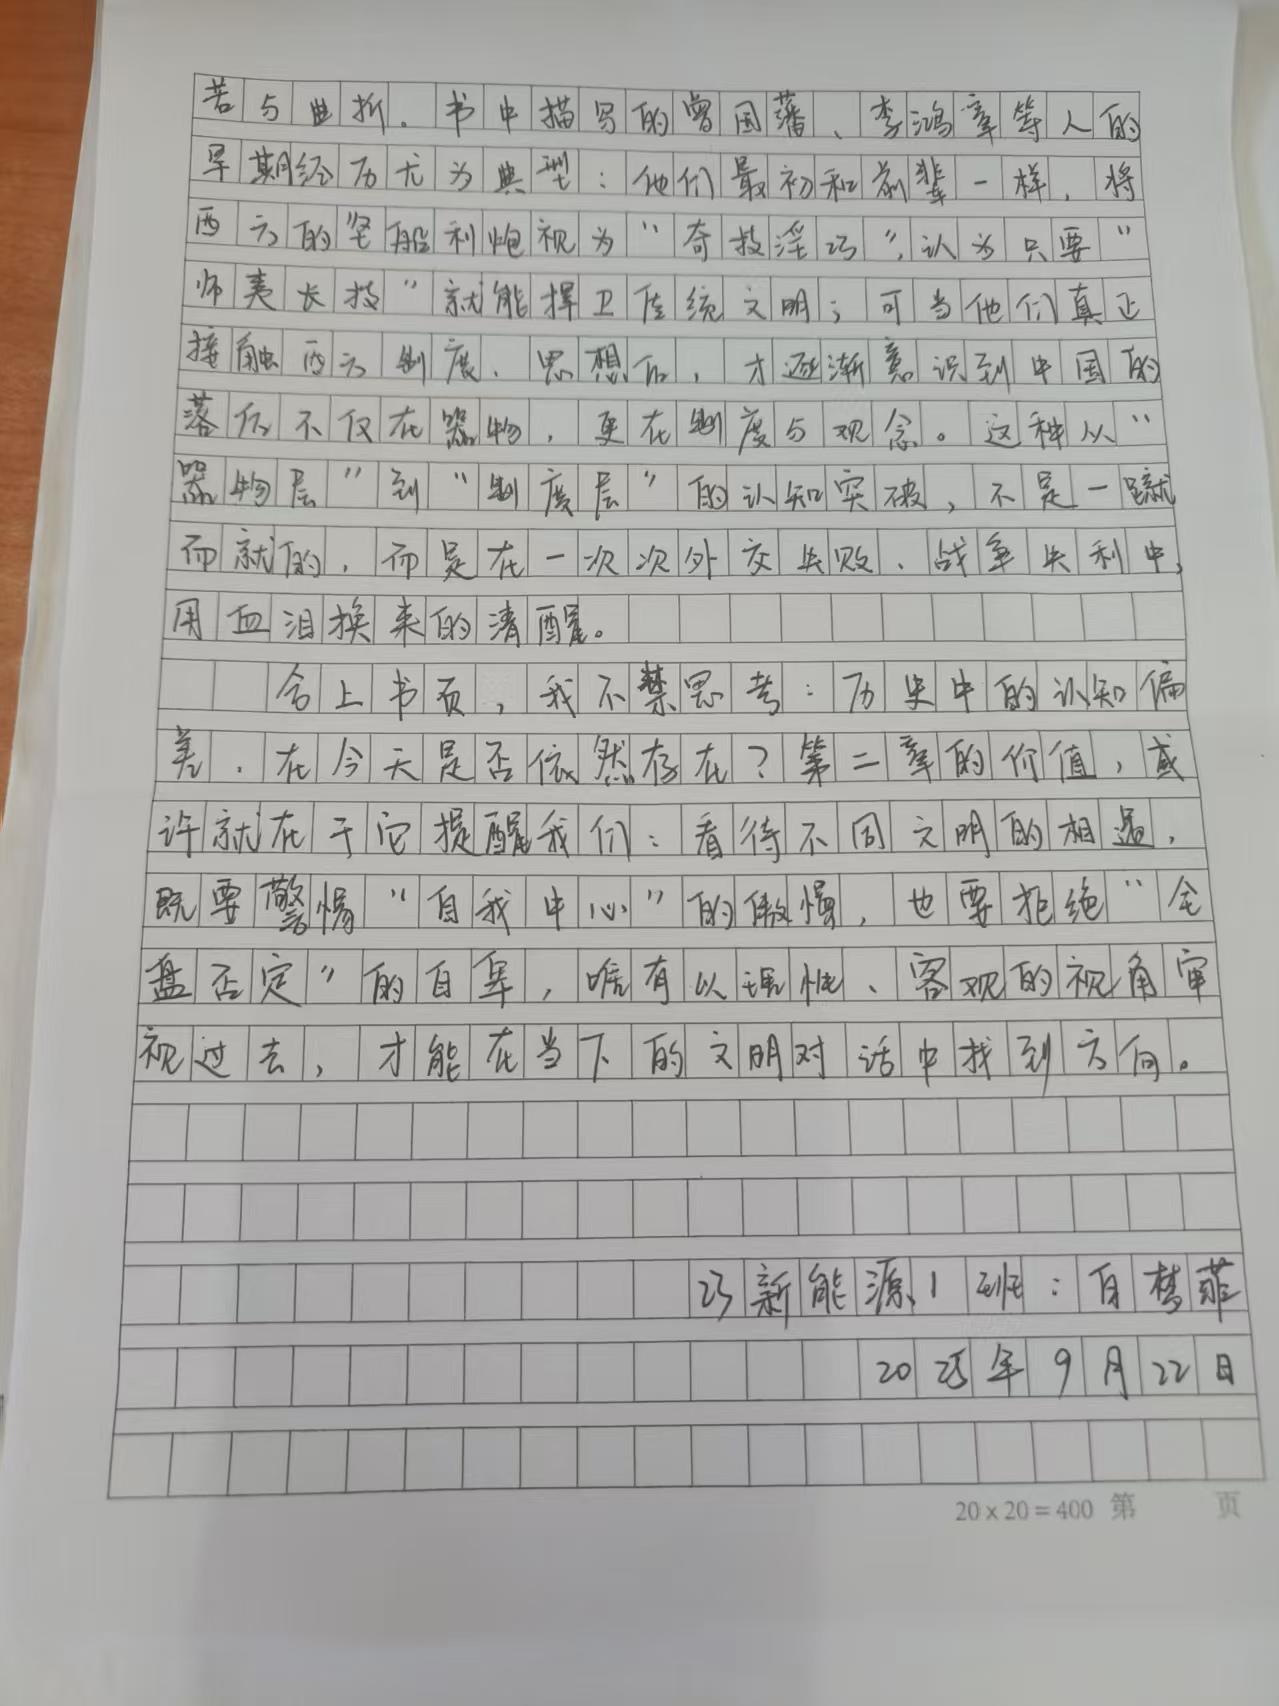 苦与曲折。书中描写的曾国藩、李鸿章等人的
早期经历尤为典型：他们最初和前辈一样，将
西方的坚船利炮视为“奇技淫巧”，认为只要“
师夷长技”就能捍卫传统文明；可当他们真正
接触西方制度、思想后，才逐渐意识到中国的
落后不仅在器物，更在制度与观念。这种从“
器物层”到“制度层”的认知突破，不是一蹴
而就的，而是在一次次外交失败、战争失利中，
用血泪换来的清醒。
合上书页，我不禁思考：历史中的认知偏
差，在今天是否依然存在？第二章的价值，或
许就在于它提醒我们：看待不同文明的相遇，
既要警惕“自我中心”的傲慢，也要拒绝“全
盘否定”的自卑，唯有以理性、客观的视角审
视过去，才能在当下的文明对话中找到方向。
25新能源1班：白梦菲
2025年9月22日
20×20＝400 第 页